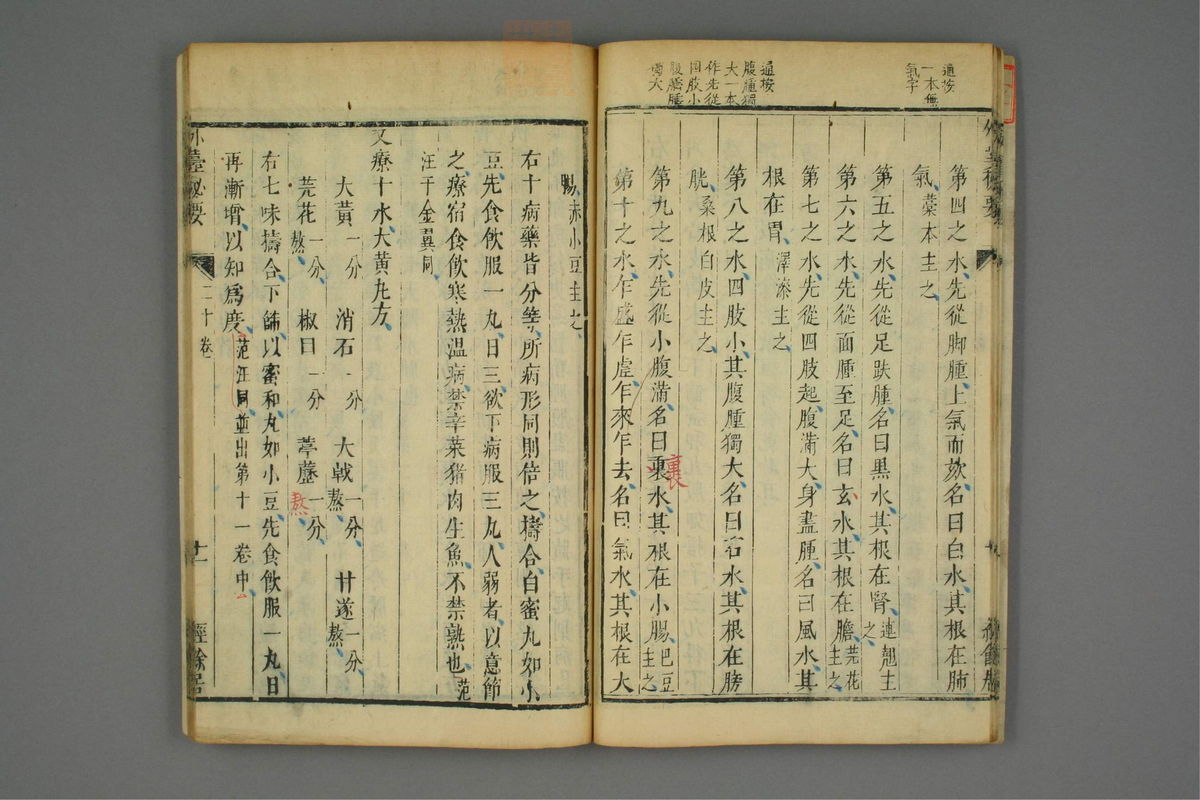 通按
一本無
氣字
通按
腹腫獨
大一本
作先從
四肢小
腹腫
大
第四之水先從脚腫上氣而欬名曰白水其根在肺
氣藁本主之
第五之水先從足趺腫名曰黑水其根在腎連翹主之
第六之水先從面腫至足名曰玄水其根在膽芫花主之
第七之水先從四肢起腹滿大身盡腫名曰風水其
根在胃澤漆主之
第八之水四肢小其腹腫獨大名曰石水其根在膀
胱桑根白皮主之
第九之水先從小腹滿名曰裹水其根在小腸巴豆主之
裏
第十之水乍盛乍虛乍來乍去名曰氣水其根在大
腸赤小豆主之
右十病藥皆分等所病形同則倍之擣合白蜜丸如小
豆先食飲服一丸日三欲下病服三丸人弱者以意節
之療宿食飲寒熱温病禁辛菜猪肉生魚不禁熟也范
汪千金翼同
又療十水大黃丸方
大黃一分 消石一分 大戟一分熬 甘遂一分熬
芫花一分熬 椒目一分 葶藶一分熬
右七味擣合下篩以蜜和丸如小豆先食飲服一丸日
再漸增以知爲度范汪同並出第十一卷中
外臺秘要 二十卷 十一 經餘居